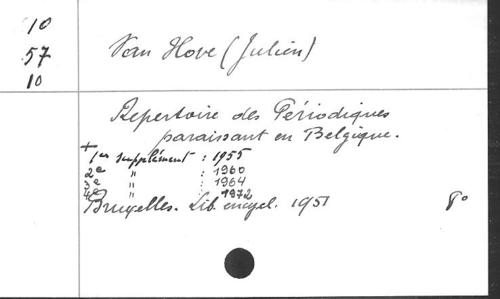 10
57
10
Van Hove (Julien)
Repertoire des Périodiques
paraissant en Belgique.
+
1er supplément : 1955
2e " : 1960
3e " : 1964
4e " : 1972
Bruxelles. Lib. encycl. 1951 8°